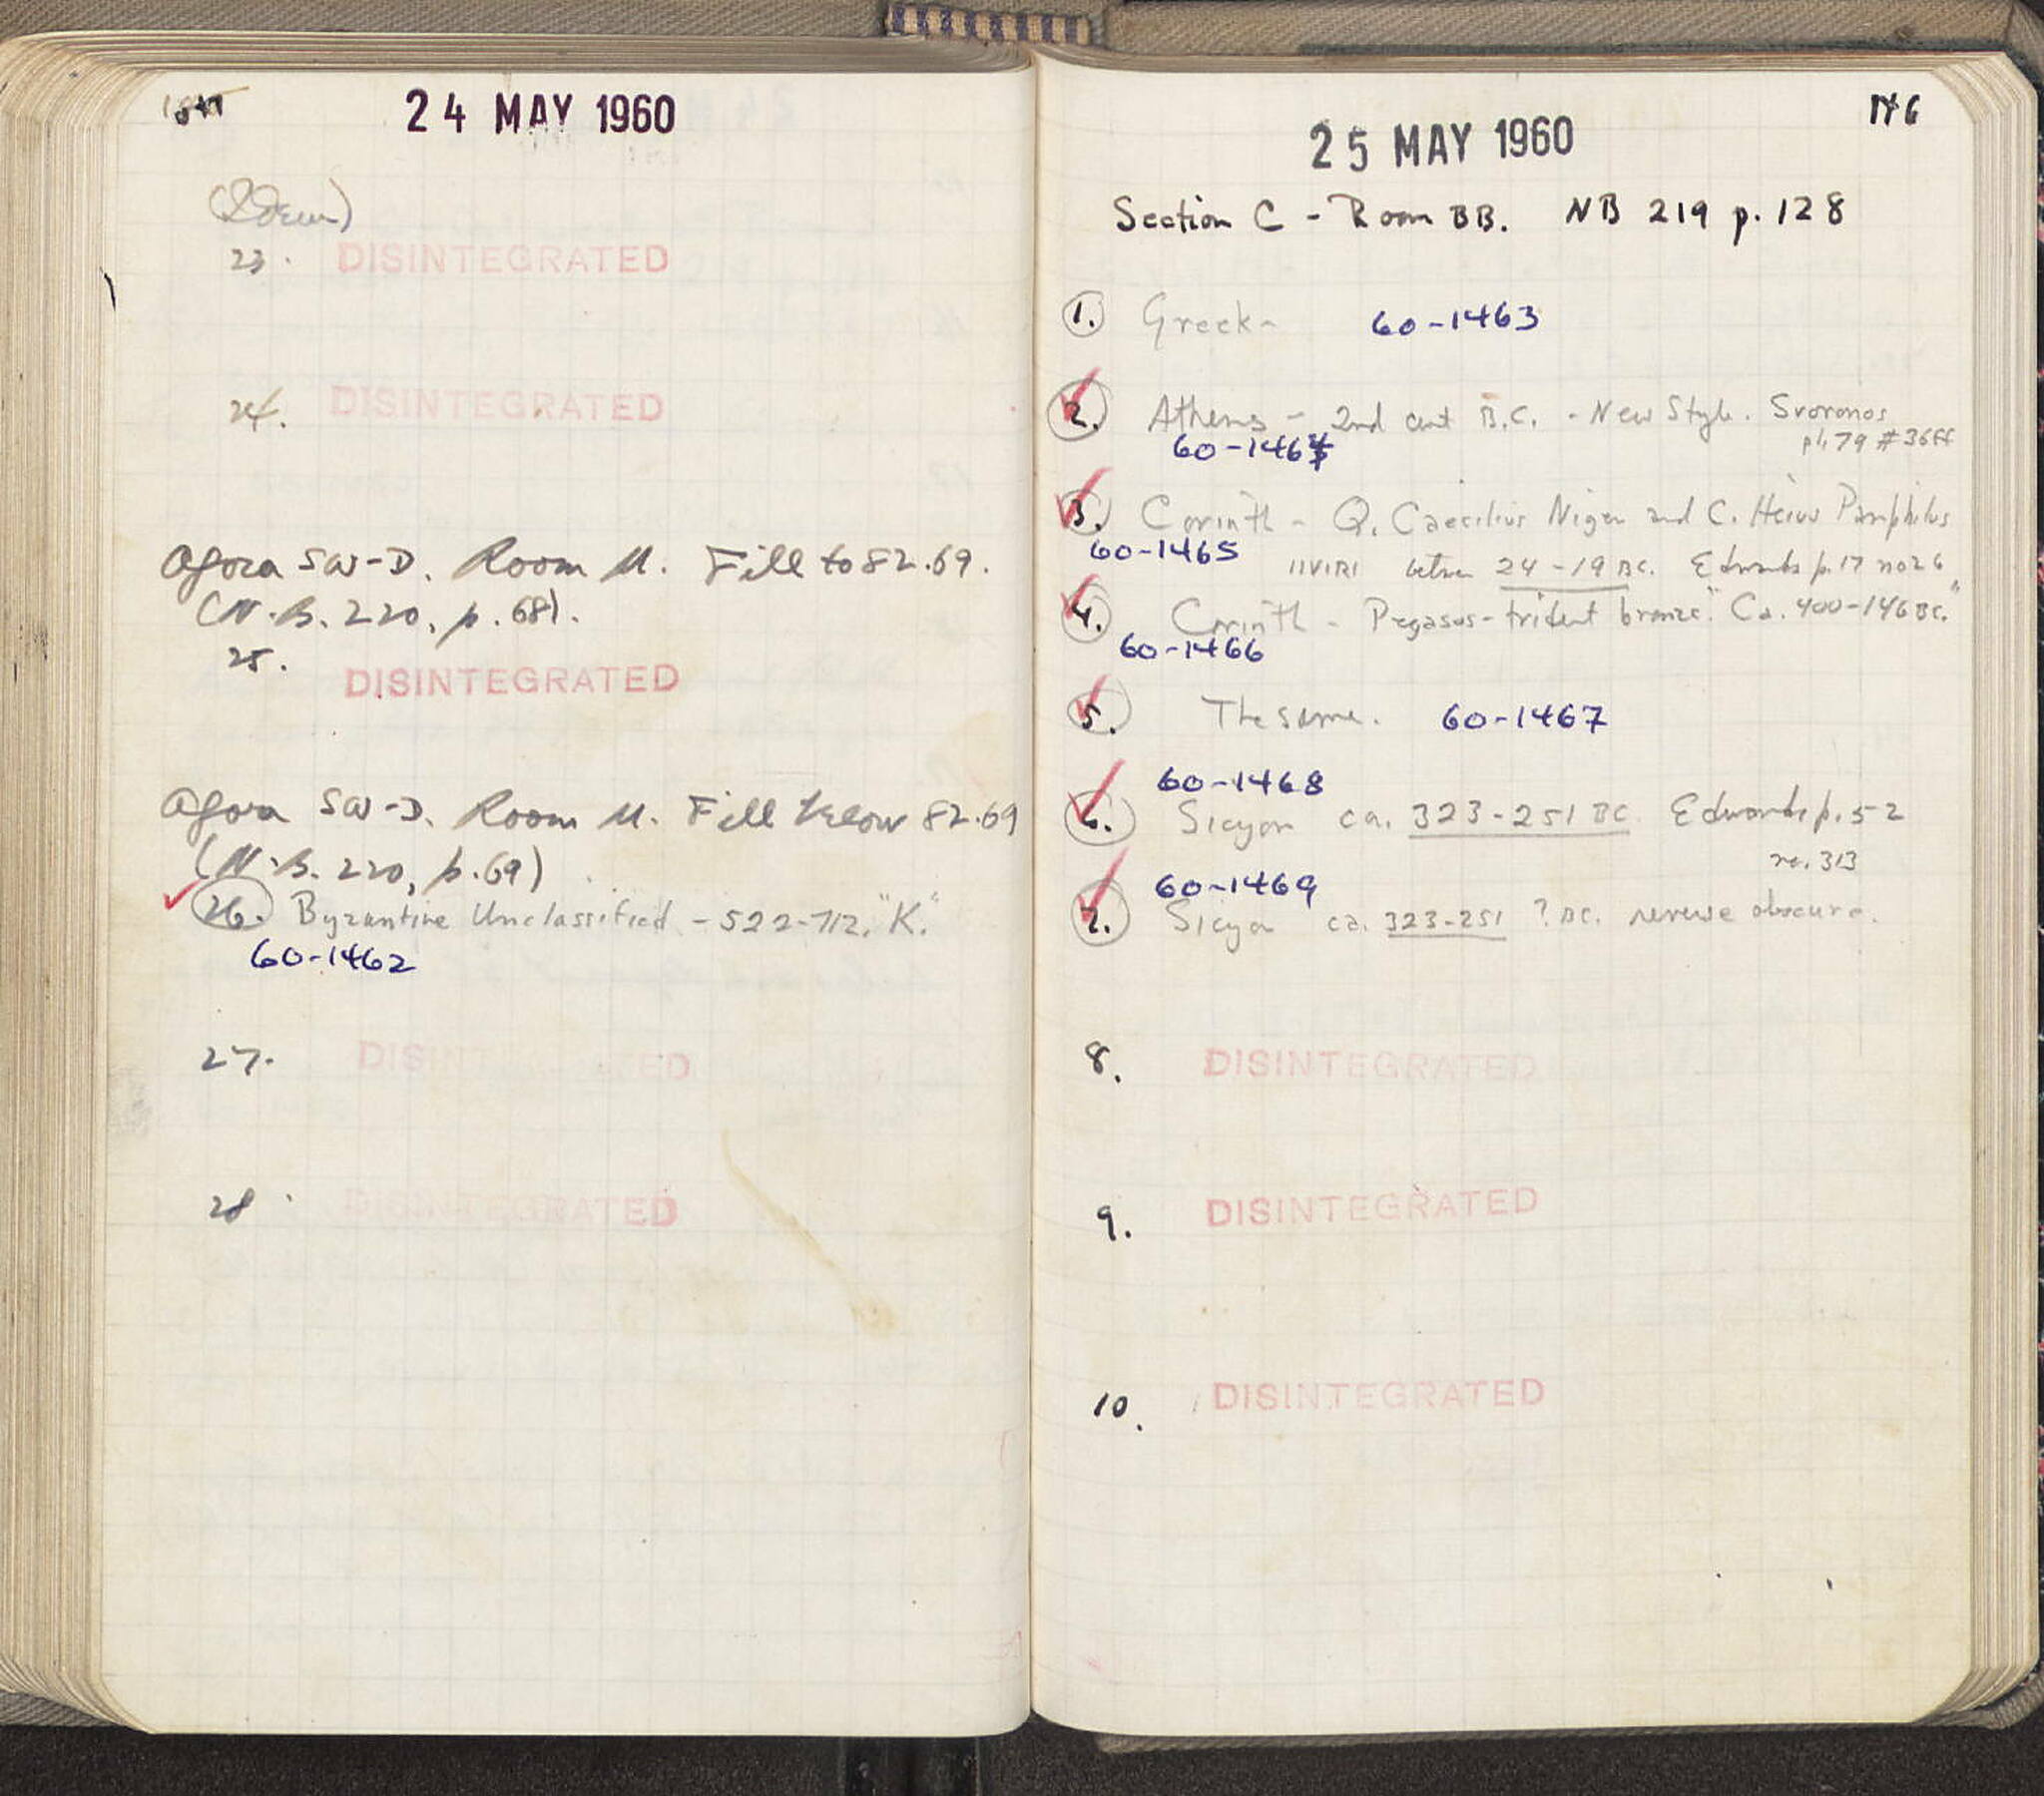 24 MAY 1960
(Idem)
23. DISINTEGRATED
24. DISINTEGRATED
Agora SW-D. Room M. Fill to 82.69.
(N.B. 220, p. 68).
25.
DISINTEGRATED
Agora SW-D. Room M. Fill below 82.69
(N.B. 220, p. 69)
26. Byzantine Unclassified - 522-712. "K."
60-1462
27. DISINTEGRATED
28. DISINTEGRATED
146
25 MAY 1960
Section C - Room BB. NB 219 p. 128
1. Greek - 60-1463
2. Athens - 2nd cent B.C. - New Style. Svoronos
pl. 79 #36ff
60-1464
3. Corinth - Q. Caecilius Niger and C. Heius Pamphilus
60-1465 IIVIRI betwn 24-19 BC. Edwards p. 17 no 26
4. Corinth - Pegasus-trident bronze. "Ca. 400-146 BC."
60-1466
5. The same. 60-1467
60-1468
6. Sicyon ca. 323-251 BC. Edwards p. 52
no. 313
60-1469
7. Sicyon ca. 323-251 ? BC. reverse obscure.
8. DISINTEGRATED
9. DISINTEGRATED
10. DISINTEGRATED